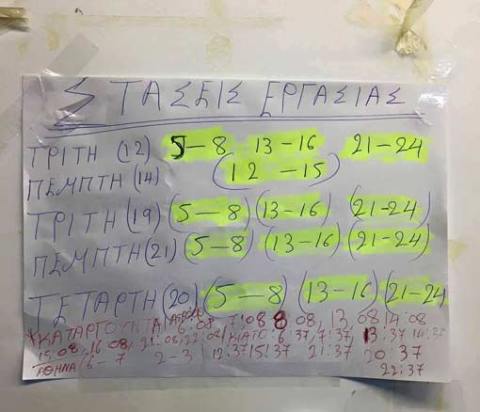 ΣΤΑΣΕΙΣ ΕΡΓΑΣΙΑΣ
ΤΡΙΤΗ (12) 5-8 13-16 21-24
ΠΕΜΠΤΗ (14) (12-15)
ΤΡΙΤΗ (19) (5-8) (13-16) (21-24)
ΠΕΜΠΤΗ (21) (5-8) (13-16) (21-24)
ΤΕΤΑΡΤΗ (20) (5-8) (13-16) (21-24)
6:08 7:08 8 08, 13 08 14:08
15:08, 16 08, 21:08, 22:08 6:37, 7:37, 13:37
6-7 2-3 15:37 21:37 20:37
22:37